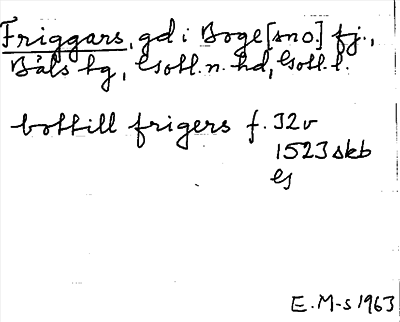 Friggars, gd i Boge [sno.] fj.,
Båls hg, Gotl. n. hd, Gotl. l.
bottill frigers f. 32v
1523 skb
G
E. M-s 1963